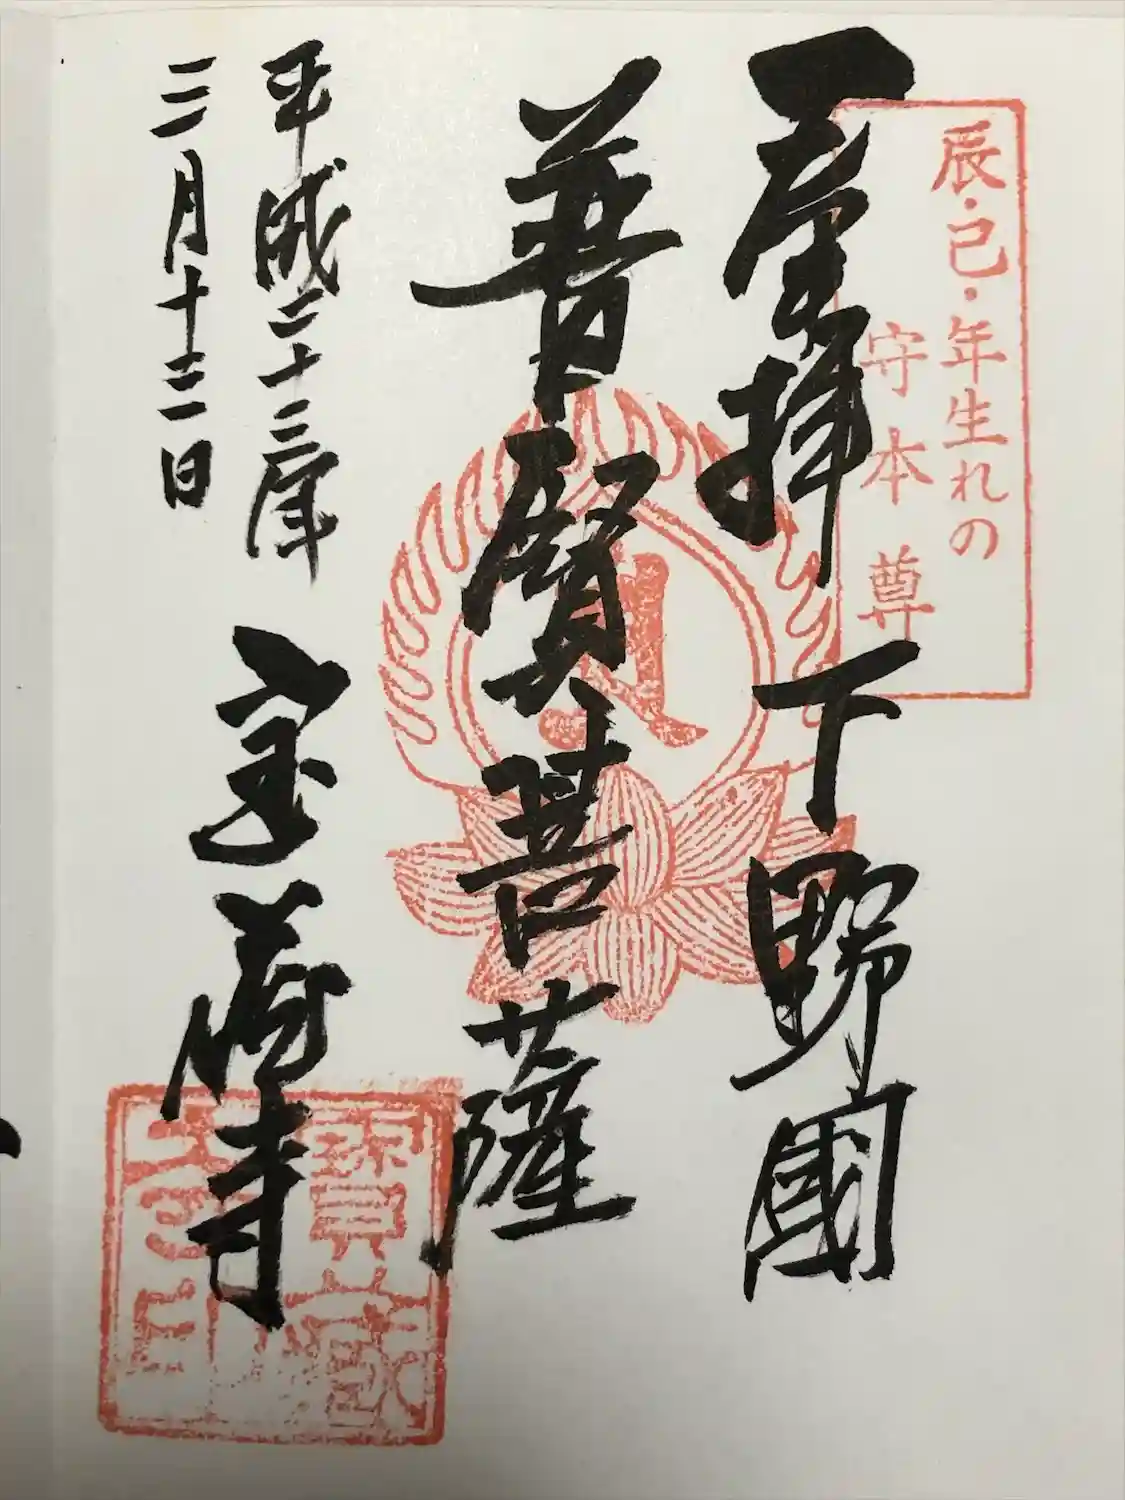 辰・巳・年生れの
守本尊
奉拝 下野國
普賢菩薩
平成二十三年
三月十二日
宝蔵寺
寶蔵
寺印